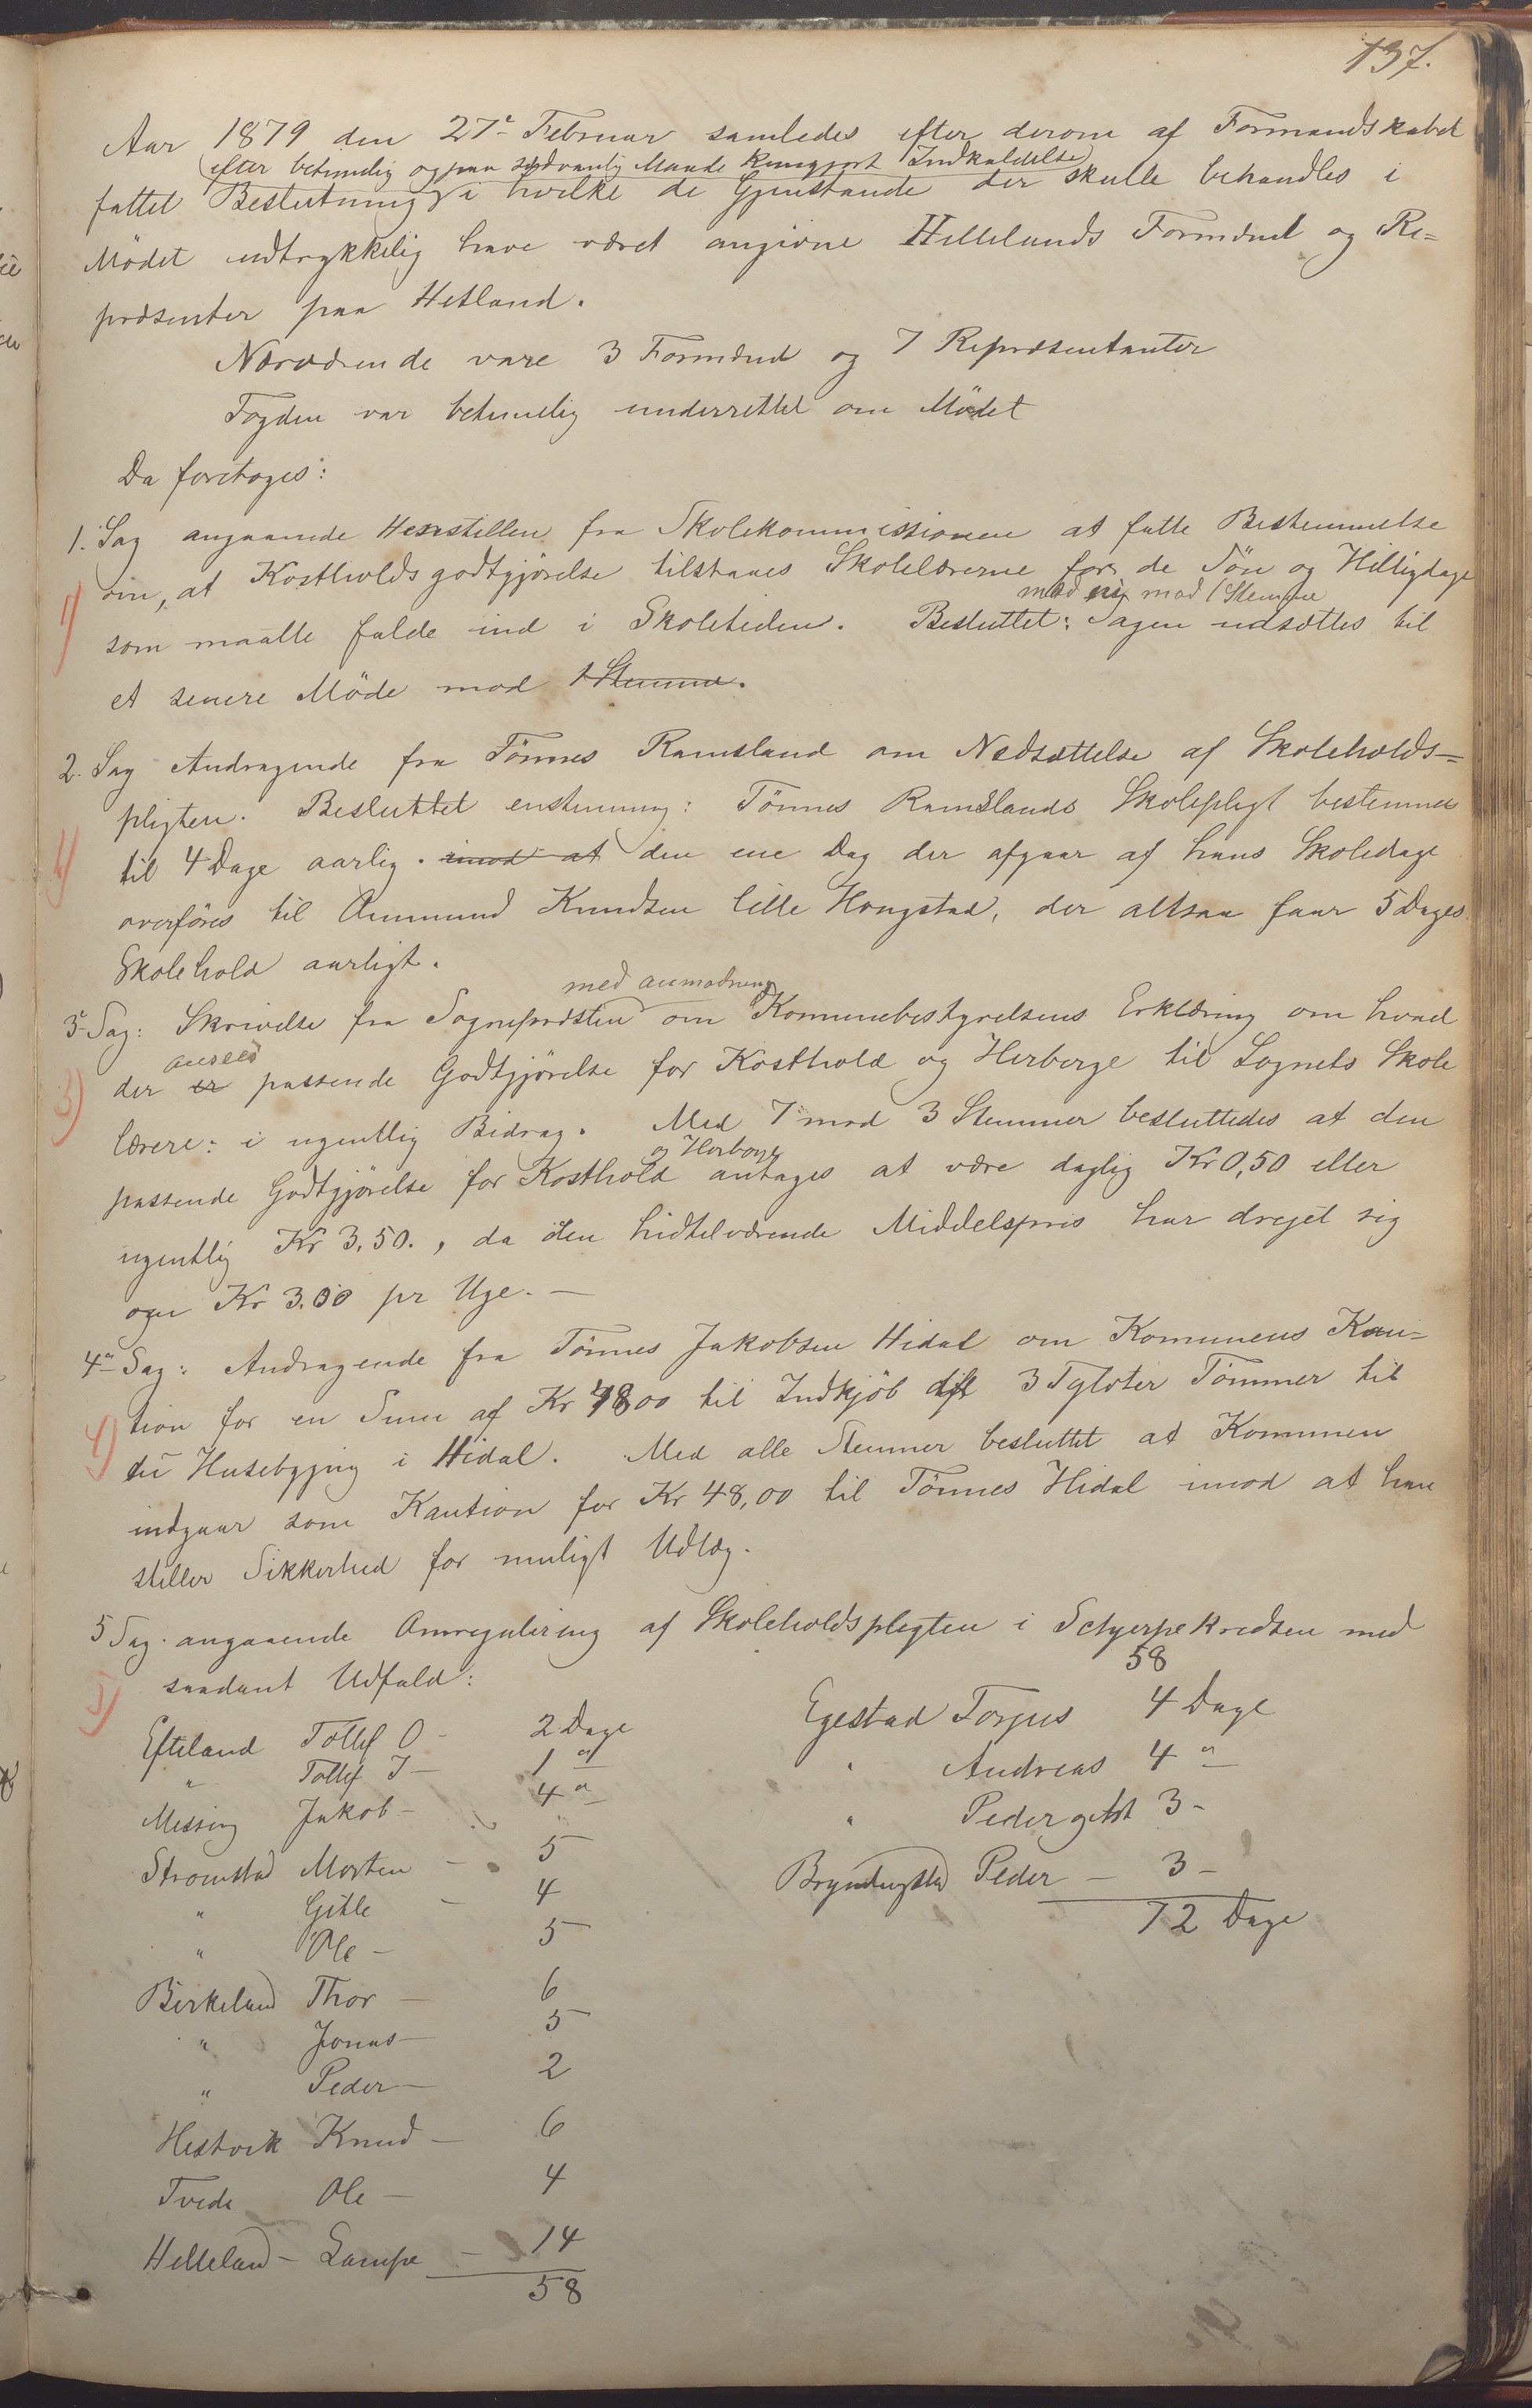 137.
Aar 1879 den 27de Februar samledes efter derom af Formandskabet
(efter betimelig og paa sædvanlig Maade kungjort Indkaldelse)
fattet Beslutning i hvilke de Gjenstande der skulle behandles i
Mødet udtrykkelig have været angivne Hellelands Formænd og Re=
præsenter paa Hetland.
Nærværende vare 3 Formænd og 7 Repræsentanter
Fogden var betimelig underrettet om Mödet
Da foretoges:
1. Sag angaaende Henstillen fra Skolekommissionen at fatte Bestemmelse
1)
om, at Kostholdsgodtgjörelse tilstaaes Skolelærerne for de Søn og Helligdage
med ni mod 1 Stemme
som maatte falde ind i Skoletiden. Besluttet: Sagen udsættes til
et senere Möde mod 1 Stemme.
2. Sag Andragende fra Tönnes Ramsland om Nedsættelse af Skoleholds=
pligten. Besluttet enstemmig: Tönnes Ramslands Skolepligt bestemmes
2)
til 4 Dage aarlig. imod at den ene Dag der afgaar af hans Skoledage
overföres til Ommund Knudsen lille Hougstad, der altsaa faar 5 Dages
Skolehold aarligt.
med anmodning
3die Sag: Skrivelse fra Sognepræsten om Kommunebestyrelsens Erklæring om hvad
ansees
3)
der er passende Godtgjörelse for Kosthold og Herberge til Sognets Skole
lærere: i ugentlig Bidrag. Med 7 mod 3 Stemmer besluttedes at den
og Herberge
passende Godtgjörelse for Kosthold antages at være daglig Kr 0,50 eller
ugentlig Kr 3.50., da den hidtilværende Middelspris har drejet sig
om Kr 3.00 pr Uge. —
4de Sag: Andragende fra Tönnes Jakobsen Hidal om Kommunens Kau=
tion for en Sum af Kr 48 00 til Indkjöb af 3 Tylvter Tömmer til
4)
en Husebygjng i Hidal. Med alle Stemmer besluttet at Kommunen
indgaar som Kaution for Kr 48,00 til Tönnes Hidal imod at han
stiller Sikkerhed for muligt Udlæg.
5 Sag. angaaende Omregulering af Skoleholdspligten i Schjerpekredsen med
5)
saadant Udfald:
Efteland Tollef O - 2 Dage
" Tollef J — 1 "
Messing Jakob - 4 "
Stromstad Morten - 5
" Gitle - 4
" Ole - 5
Birkeland Thor — 6
" Jonas — 5
" Peder — 2
Hestvik Knud — 6
Tveda Ole — 4
Helleland - Lampe — 14
58
58
Egestad Torjus 4 Dage
" Andreas 4 "
" Peder 3 -
Peder — 3 -
72 Dage